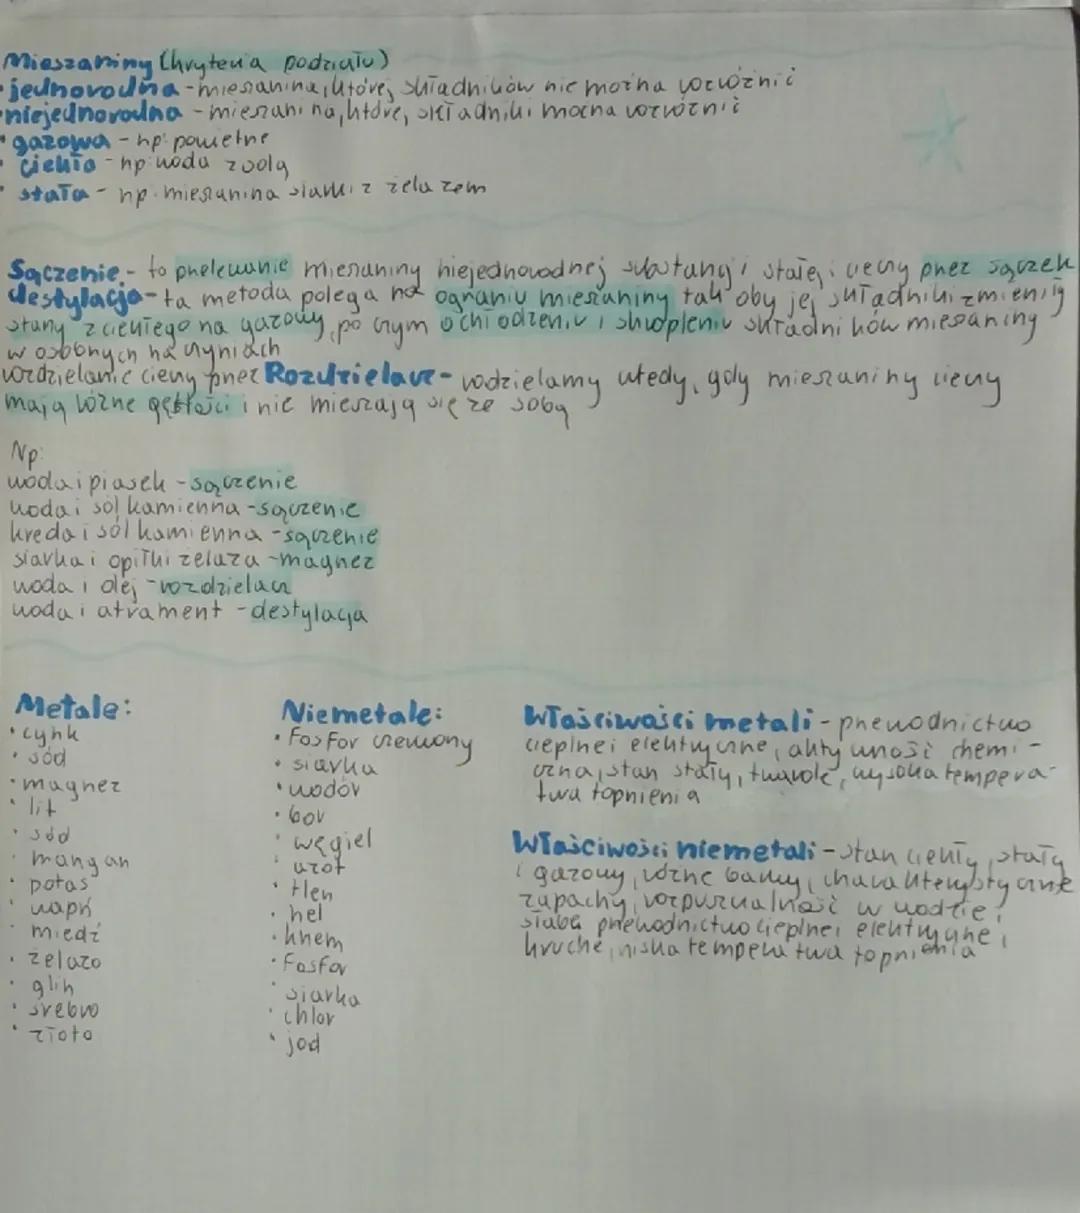 Mieszaniny (kryteria podziału)
• jednorodna - mieszanina, której składników nie można rozróżnić
• niejednorodna - mieszanina, której składniki można rozróżnić
• gazowa - np. powietrze
• ciekła - np. woda z solą
• stała - np. mieszanina siarki z żelazem
Sączenie - to przelewanie mieszaniny niejednorodnej substancji stałej i cieczy przez sączek
destylacja - ta metoda polega na ograniu mieszaniny tak aby jej składniki zmieniły
stany z ciekłego na gazowy, po czym ochłodzeniu i skropleniu składników mieszaniny
w osobnych naczyniach
rozdzielanie cieczy przez Rozdzielacz - rodzielamy wtedy, gdy mieszaniny cieczy
mają różne gęstości i nie mieszają się ze sobą
Np:
woda i piasek - sączenie
woda i sól kamienna - sączenie
kreda i sól kamienna - sączenie
siarka i opiłki żelaza - magnez
woda i olej - rozdzielacz
woda i atrament - destylacja
Metale:
• cynk
• sód
• magnez
• lit
• sód
• mangan
• potas
• wapń
• miedź
• żelazo
• glin
• srebro
• złoto
Niemetale:
• fosfor czerwony
• siarka
• wodór
• bor
• węgiel
• azot
• tlen
• hel
• krzem
• fosfor
• siarka
• chlor
• jod
Właściwości metali - przewodnictwo
cieplne i elektryczne, aktywność chemi-
czna, stan stały, twarde, wysoka tempera-
tura topnienia
Właściwości niemetali - stan ciekły, stały
i gazowy, różne barwy, charakterystyczne
zapachy, rozpuszczalność w wodzie,
słabe przewodnictwo cieplne i elektryczne,
kruche, niska temperatura topnienia